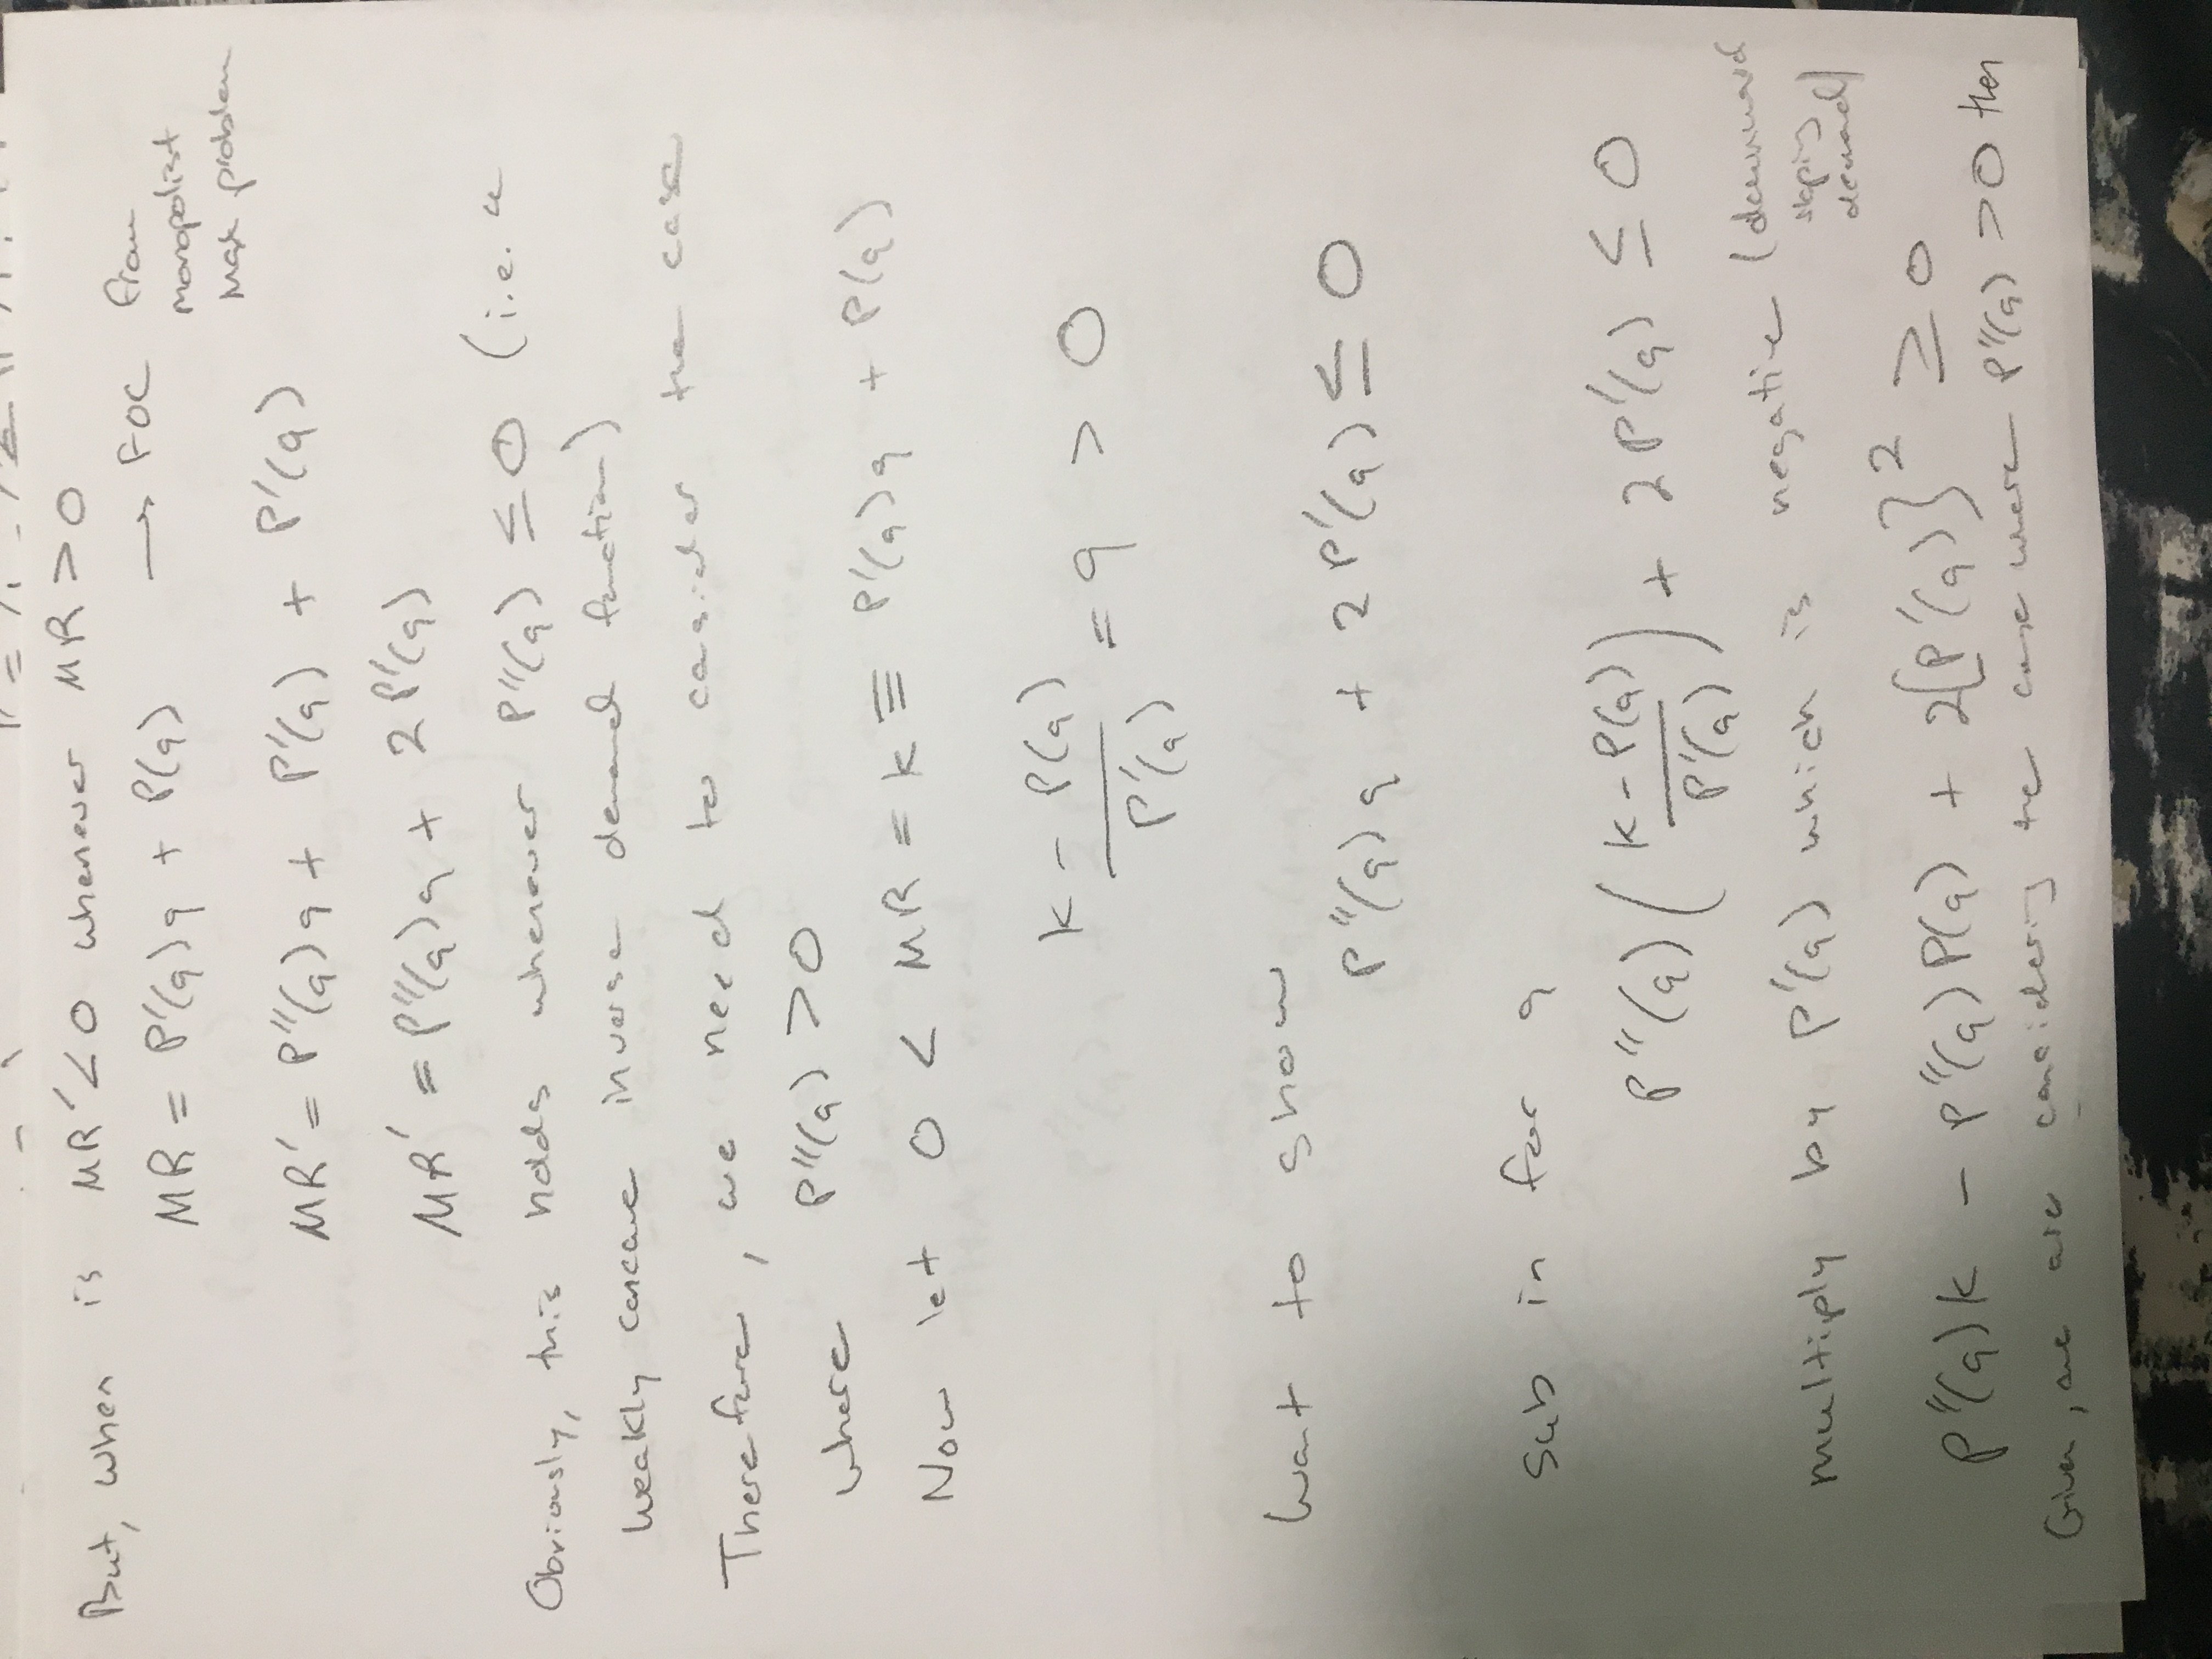 But, when is MR′ < 0 whenever MR > 0
MR = P′(q)q + P(q) → FOC from
monopolist
Max problem
MR′ = P″(q)q + P′(q) + P′(q)
MR′ = P″(q)q + 2P′(q)
Obviously, this holds whenever P″(q) ≤ 0 (i.e. a
weakly concave inverse demand function)
Therefore, we need to consider the case
where P″(q) > 0
Now let 0 < MR = k ≡ P′(q)q + P(q)
(k - P(q)) / P′(q) = q > 0
Want to show
P″(q)q + 2P′(q) ≤ 0
Sub in for q
P″(q)((k - P(q)) / P′(q)) + 2P′(q) ≤ 0
multiply by P′(q) which is negative (downward
sloping
demand)
P″(q)k - P″(q)P(q) + 2{P′(q)}² ≥ 0
Given, we are considering the case where P″(q) > 0 then